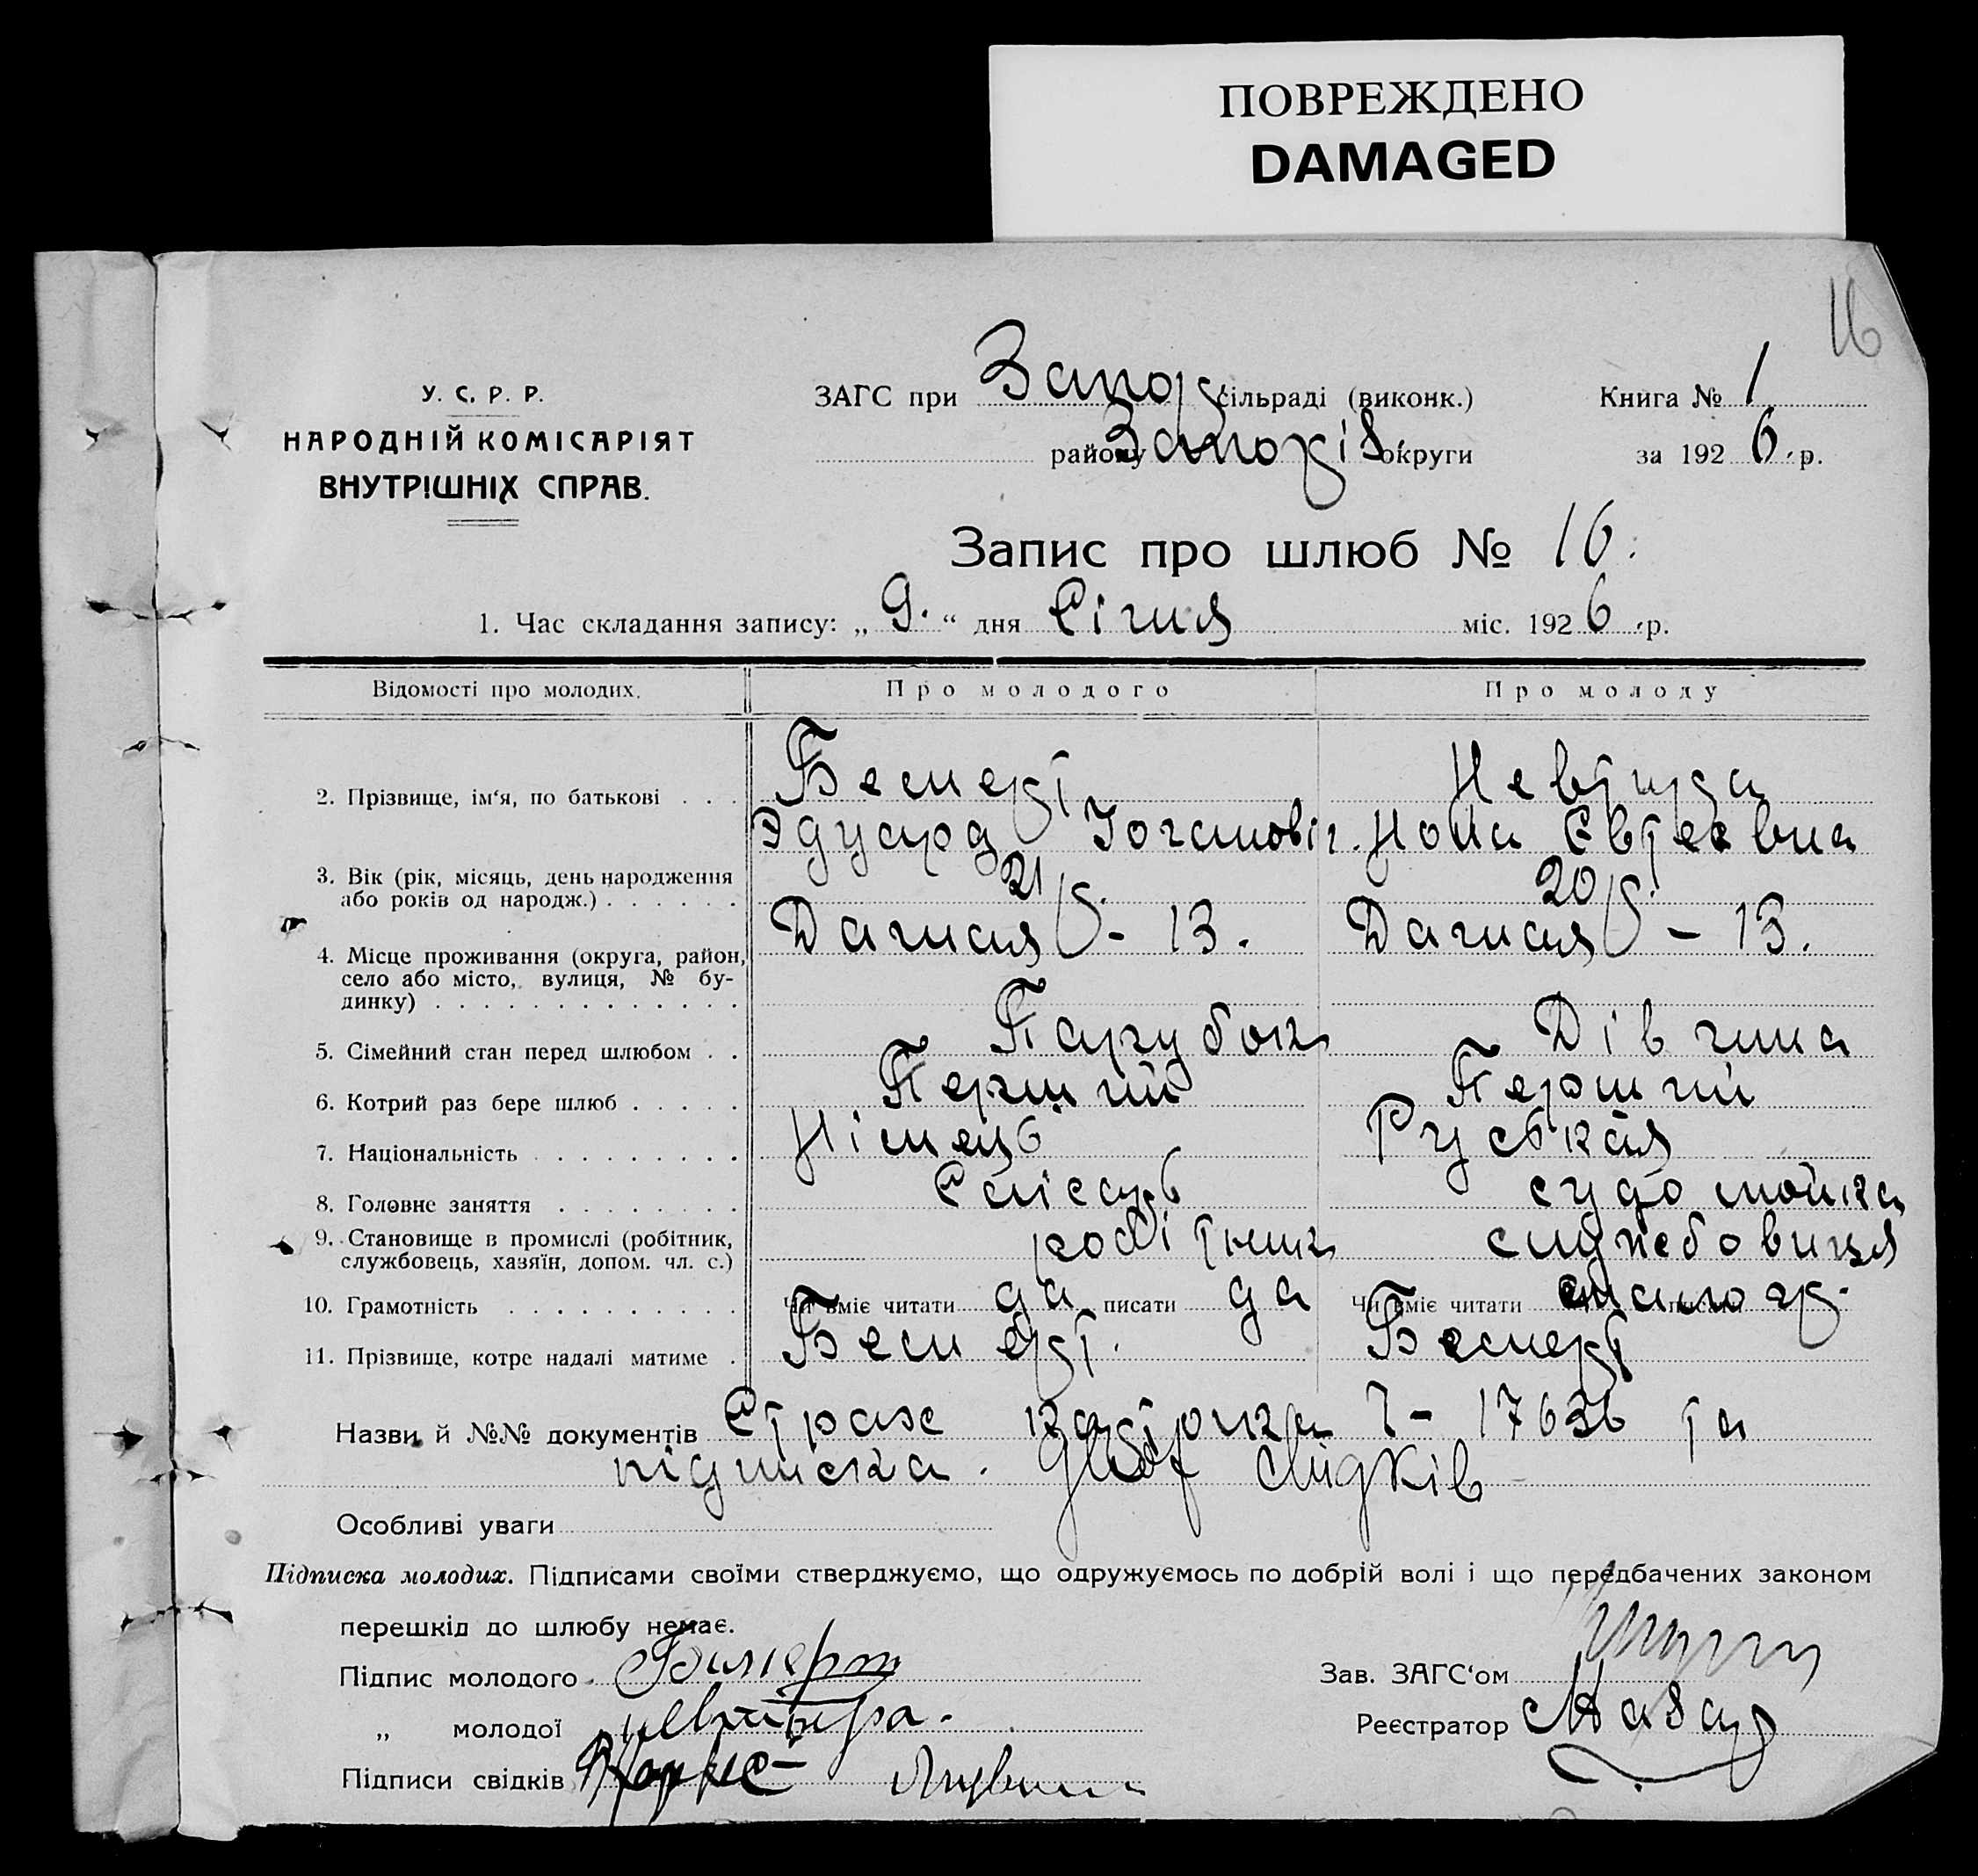 ПОВРЕЖДЕНО
DAMAGED
16
У. С. Р. Р.
НАРОДНІЙ КОМІСАРІЯТ
ВНУТРІШНІХ СПРАВ.
ЗАГС при Запор. сільраді (виконк.)
району Запоріз. округи
Книга № 1
за 1926 р.
Запис про шлюб № 16.
1. Час складання запису: „ 9. “ дня Січня міс. 1926 р.
Відомості про молодих.
Про молодого
Про молоду
2. Прізвище, ім‘я, по батькові . . . Бемерт Невтира
Эдуард Йоганович. Нона Євтеєвна
3. Вік (рік, місяць, день народження або років од народж.) . . . . . . 21 20
4. Місце проживання (округа, район, село або місто, вулиця, № будинку) . . . . . . . . . . . . . - 13. - 13.
5. Сімейний стан перед шлюбом . . Парубок Дівчина
6. Котрий раз бере шлюб . . . . . Перший Перший
7. Національність . . . . . . . . . Німець Руськая
8. Головне заняття . . . . . . . . Слісарь судомойка
9. Становище в промислі (робітник, службовець, хазяїн, допом. чл. с.) робітник службовиця
10. Грамотність . . . . . . . . . . Чи вміє читати да писати да Чи вміє читати малогр.
11. Прізвище, котре надалі матиме . Бемерт. Бемерт
Назви й №№ документів Страх карточка 17636 та
підписка. двох свідків
Особливі уваги
Підписка молодих. Підписами своїми стверджуємо, що одружуємось по добрій волі і що передбачених законом
перешкід до шлюбу немає.
Підпис молодого Бемерт
„ молодої Невтира.
Підписи свідків
Зав. ЗАГС‘ом
Реєстратор Мазар